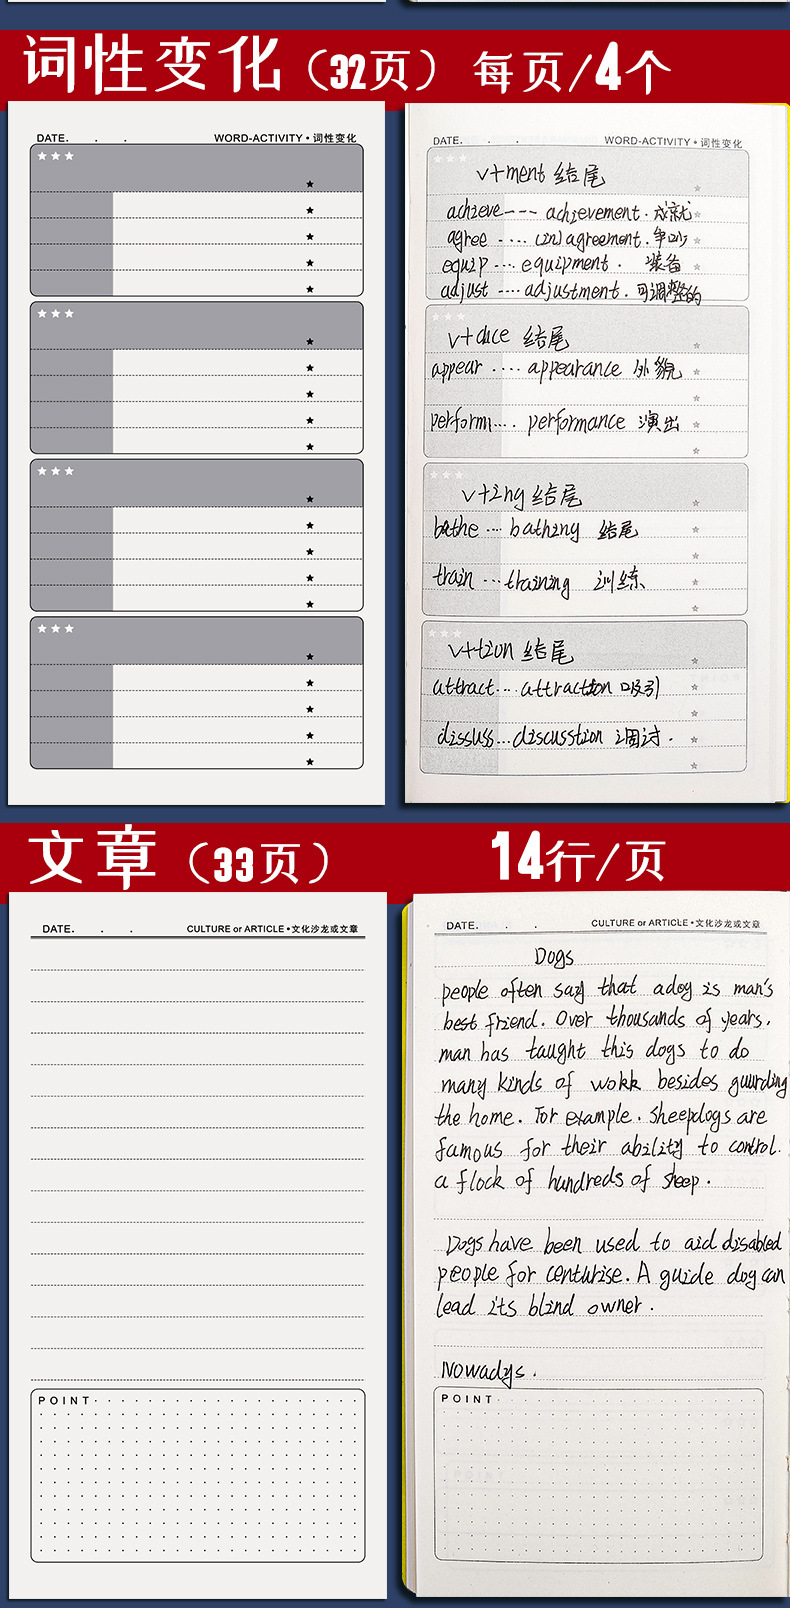 词性变化（32页） 每页/4个
DATE. . . WORD-ACTIVITY•词性变化
DATE. . . WORD-ACTIVITY•词性变化
v+ment 结尾
achieve--- achievement. 成就
agree .... (in)agreement. 争吵
equip ... equipment. 装备
adjust .... adjustment. 可调整的
v+duce 结尾
appear .... appearance 外貌
perform.... performance 演出
v+ing 结尾
bathe ... bathing 结尾
train ... training 训练
v+tion 结尾
attract... attraction 吸引
dissuss...discusstion 调讨.
文章（33页） 14行/页
DATE. . . CULTURE or ARTICLE•文化沙龙或文章
POINT
DATE. . . CULTURE or ARTICLE•文化沙龙或文章
Dogs
people often say that a dog is man's
best friend. Over thousands of years.
man has taught this dogs to do
many kinds of wokk besides guurding
the home. For example. Sheepdogs are
famous for their ability to control.
a flock of hundreds of sheep.
Dogs have been used to aid disabled
people for centurise. A guide dog can
lead its blind owner.
Nowadys.
POINT